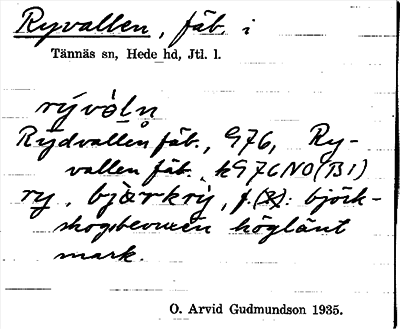 Ryvallen, fäb. i
Tännäs sn, Hede hd, Jtl. l.
rývòln
Rydvallen fäb., 976, Ry-
vallen fäb., k976NO(B1)
ry, bjàrkrý, f. : björk-
skogsbevuxen höglänt
mark.
O. Arvid Gudmundson 1935.